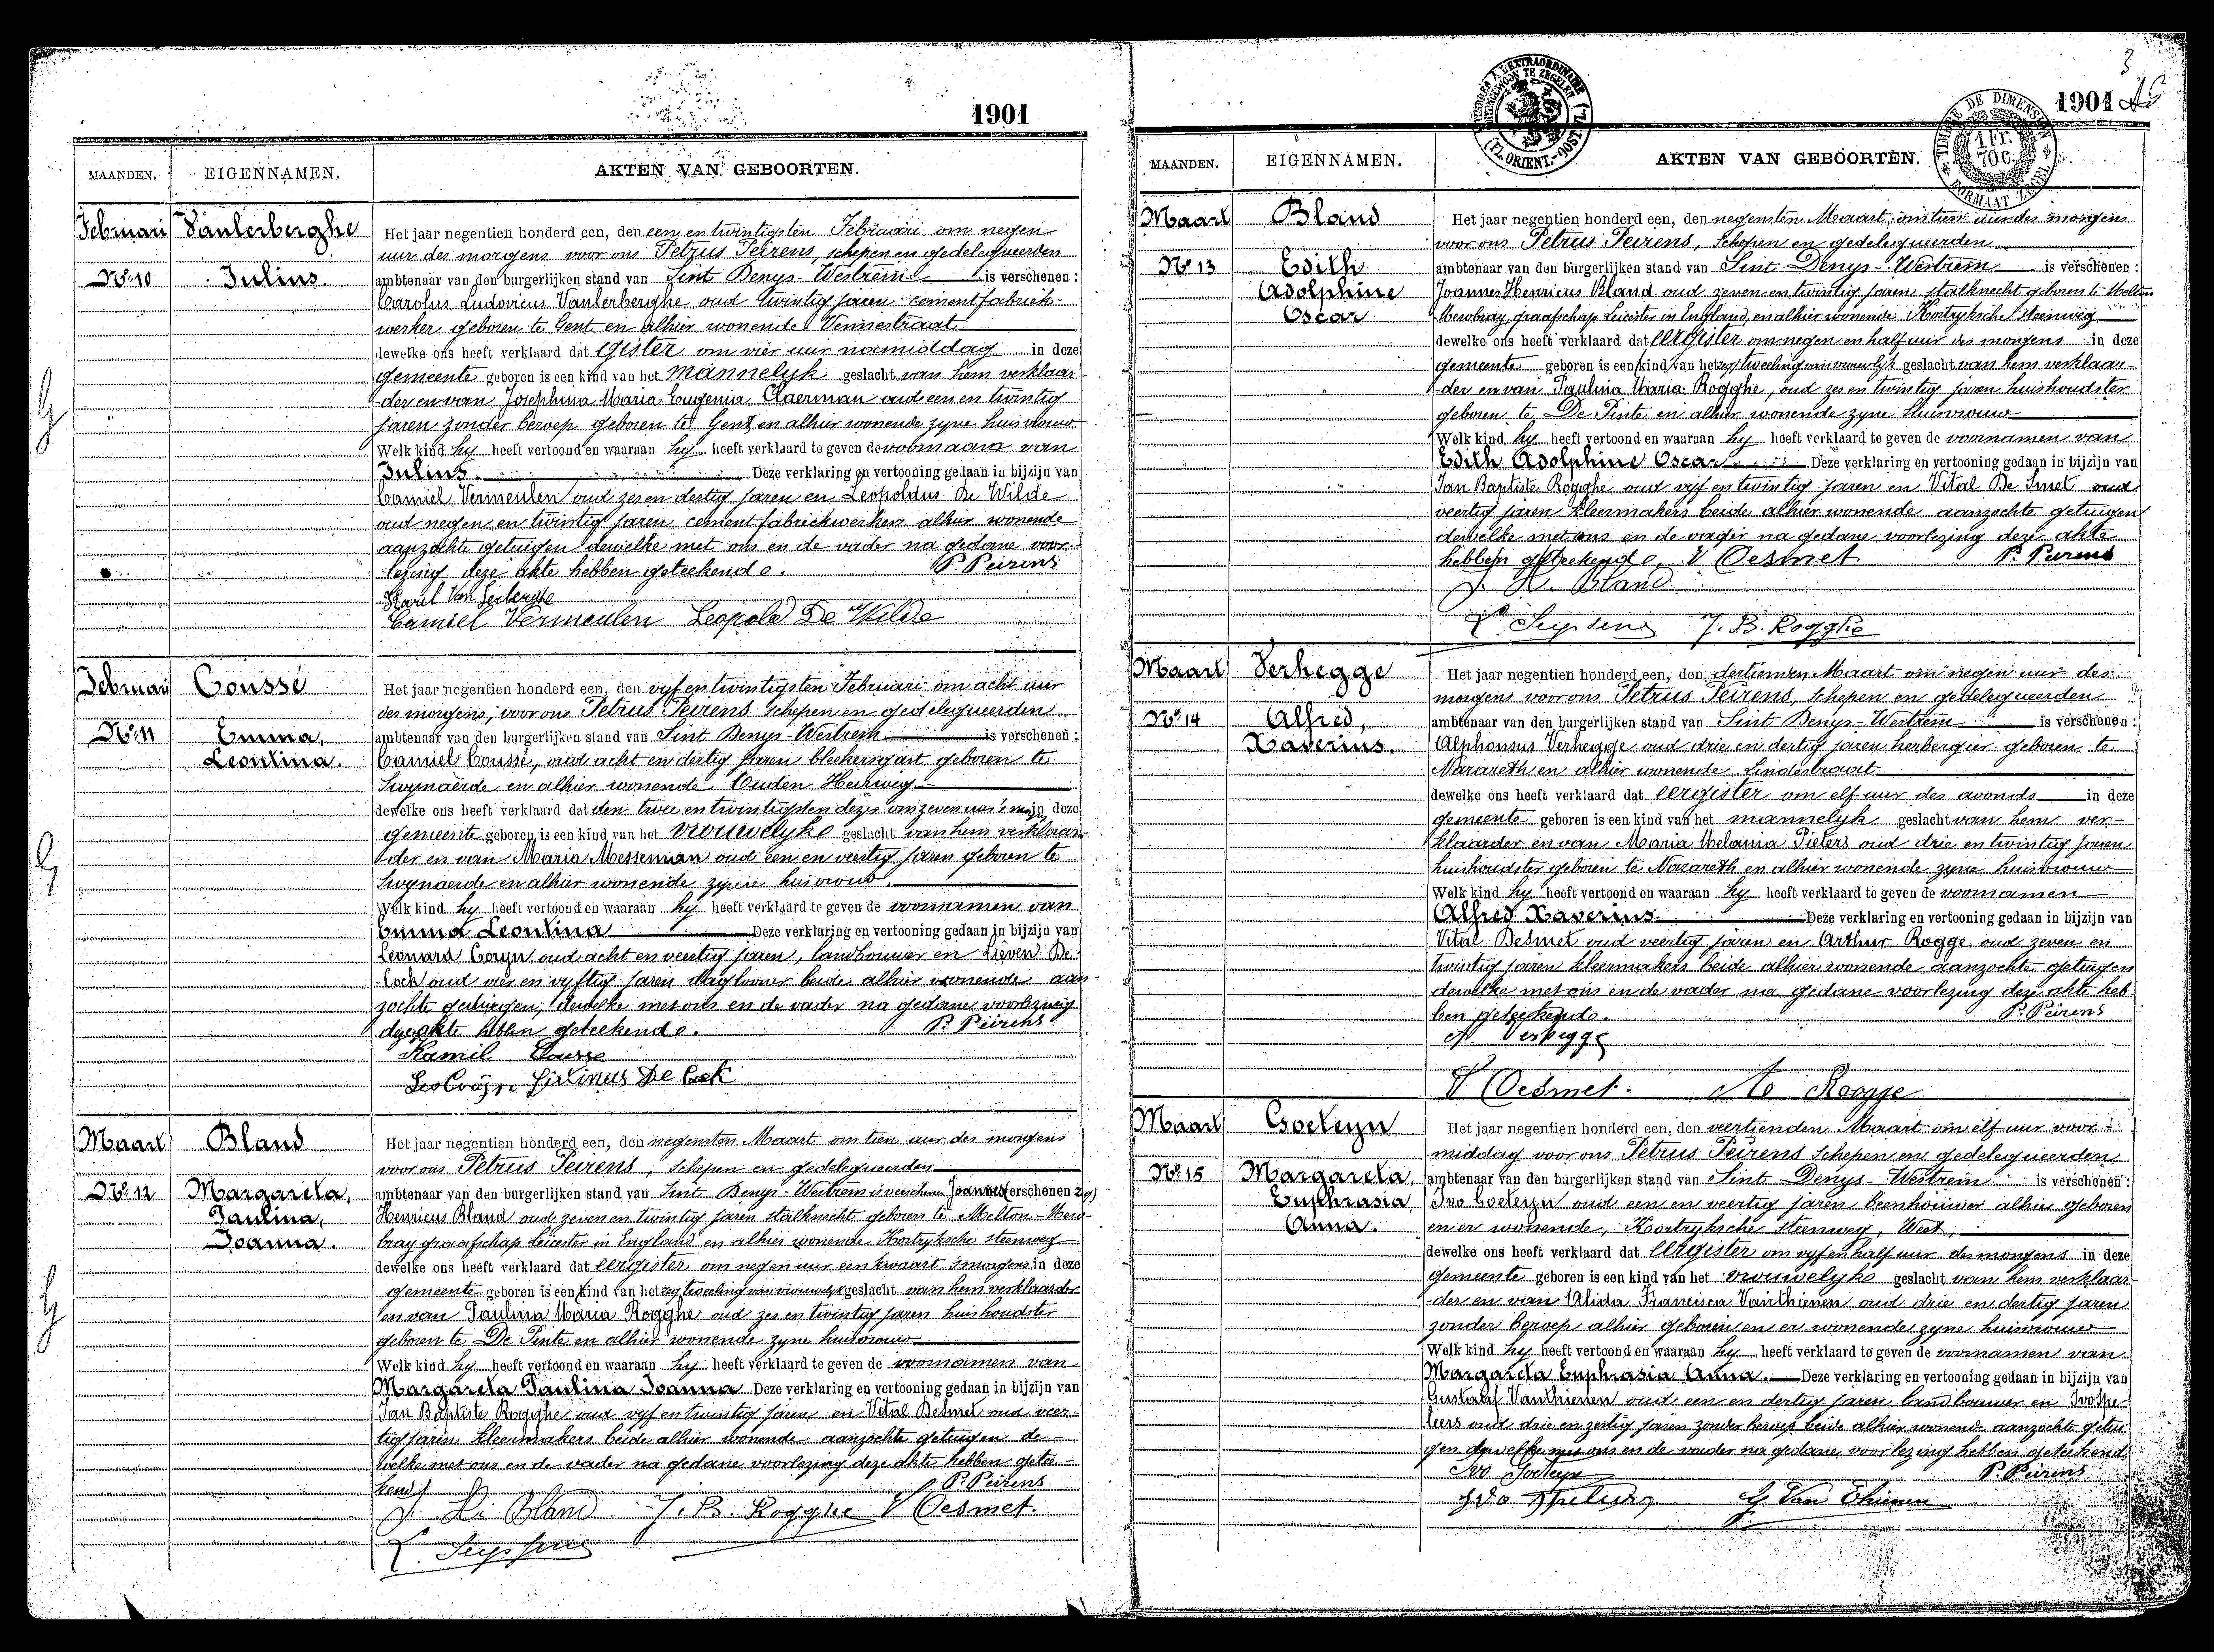 1901
MAANDEN. EIGENNAMEN. AKTEN VAN GEBOORTEN.
Februari Vanlerberghe
No. 10 Julius.
Het jaar negentien honderd een, den een en twintigsten Februari om negen
uur des morgens voor ons Petrus Peirens, schepen en gedelegueerden
ambtenaar van den burgerlijken stand van Sint Denys-Westrem is verschenen :
Carolus Ludovicus Vanlerberghe oud twintig jaren cementfabriek-
werker geboren te Gent en alhier wonende Vennestraat
dewelke ons heeft verklaard dat gister om vier uur namiddag in deze
gemeente geboren is een kind van het mannelyk geslacht van hem verklaar-
der en van Josephina Maria Eugenia Claerman oud een en twintig
jaren zonder beroep geboren te Gent en alhier wonende zyne huisvrouw
Welk kind hy heeft vertoond en waaraan hy heeft verklaard te geven de voornaam van
Julius. Deze verklaring en vertooning gedaan in bijzijn van
Camiel Vermeulen oud zes en dertig jaren en Leopoldus De Wilde
oud negen en twintig jaren cement fabriekwerkers alhier wonende
aanzochte getuigen dewelke met ons en de vader na gedane voor-
lezing deze akte hebben geteekend. P. Peirens
Karel Van Lerberghe
Camiel Vermeulen Leopold De Wilde
Februari Coussé
No. 11 Emma, Leontina.
Het jaar negentien honderd een, den vyf en twintigsten Februari om acht uur
des morgens, voor ons Petrus Peirens schepen en gedelegueerden
ambtenaar van den burgerlijken stand van Sint Denys-Westrem is verschenen :
Camiel Coussé, oud acht en dertig jaren bleekersgast geboren te
Swynaerde en alhier wonende Ouden Heirweg
dewelke ons heeft verklaard dat den twee en twintigsten dezer om zeven uur 's in deze
gemeente geboren is een kind van het vrouwelyke geslacht van hem verklaar-
der en van Maria Messeman oud een en veertig jaren geboren te
Swynaerde en alhier wonende zyne huisvrouw.
Welk kind hy heeft vertoond en waaraan hy heeft verklaard te geven de voornamen van
Emma Leontina Deze verklaring en vertooning gedaan in bijzijn van
Leonard Coryn oud acht en veertig jaren, landbouwer en Lieven De
Cock oud vier en vyftig jaren daglooner beide alhier wonende aan-
zochte getuigen, dewelke met ons en de vader na gedane voorlezing
deze akte hebben geteekend. P. Peirens
Kamil Cousse
Livinus De Cock
Maart Bland
No. 12 Margareta, Paulina, Joanna.
Het jaar negentien honderd een, den negensten Maart om tien uur des morgens
voor ons Petrus Peirens, Schepen en gedelegueerden
ambtenaar van den burgerlijken stand van Sint Denys-Westrem is verschenen Joannes verschenen
Henricus Bland oud zeven en twintig jaren stalknecht geboren te Melton-Mow-
bray graafschap Leicester in England en alhier wonende Kortryksche steenweg
dewelke ons heeft verklaard dat eergister om negen uur een kwaart 's morgens in deze
gemeente geboren is een kind van het zeg tweeling van vrouwelyk geslacht van hem verklaarder
en van Paulina Maria Rogghe oud zes en twintig jaren huishoudster
geboren te De Pinte en alhier wonende zyne huisvrouw
Welk kind hy heeft vertoond en waaraan hy heeft verklaard te geven de voornamen van
Margareta Paulina Joanna Deze verklaring en vertooning gedaan in bijzijn van
Jan Baptiste Rogghe oud vyf en twintig jaren en Vital Desmet oud veer-
tig jaren kleermakers beide alhier wonende aanzochte getuigen de-
welke met ons en de vader na gedane voorlezing deze akte hebben getee-
kend P. Peirens
J. H. Bland J. B. Rogghe V Desmet.
3
1901
MAANDEN. EIGENNAMEN. AKTEN VAN GEBOORTEN.
TIMBRE DE DIMENSION
1 Fr.
70 c.
FORMAAT ZEGEL
Maart Bland
No. 13 Edith Adolphine Oscar
Het jaar negentien honderd een, den negensten Maart om tien uur des morgens
voor ons Petrus Peirens, Schepen en gedelegueerden
ambtenaar van den burgerlijken stand van Sint-Denys-Westrem is verschenen :
Joannes Henricus Bland oud zeven en twintig jaren stalknecht geboren te Melton
Mowbray, graafschap Leicester in England, en alhier wonende Kortryksche steenweg
dewelke ons heeft verklaard dat eergister om negen en half uur des morgens in deze
gemeente geboren is een kind van het zeg tweeling van vrouwlyk geslacht van hem verklaar-
der en van Paulina Maria Rogghe, oud zes en twintig jaren huishoudster
geboren te De Pinte en alhier wonende zyne huisvrouw
Welk kind hy heeft vertoond en waaraan hy heeft verklaard te geven de voornamen van
Edith Adolphine Oscar Deze verklaring en vertooning gedaan in bijzijn van
Jan Baptiste Rogghe oud vyf en twintig jaren en Vital De Smet oud
veertig jaren kleermakers beide alhier wonende aanzochte getuigen
dewelke met ons en de vader na gedane voorlezing deze akte
hebben geteekend. V Desmet P. Peirens
J. H. Bland
J. B. Rogghe
Maart Verhegge
No. 14 Alfred, Xaverius.
Het jaar negentien honderd een, den dertienden Maart om negen uur des
morgens voor ons Petrus Peirens, Schepen en gedelegueerden
ambtenaar van den burgerlijken stand van Sint Denys-Westrem is verschenen :
Alphonsus Verhegge oud drie en dertig jaren herbergier geboren te
Nazareth en alhier wonende Lindestraat
dewelke ons heeft verklaard dat eergister om elf uur des avonds in deze
gemeente geboren is een kind van het mannelyk geslacht van hem ver-
klaarder en van Maria Melania Pieters oud drie en twintig jaren
huishoudster geboren te Nazareth en alhier wonende zyne huisvrouw
Welk kind hy heeft vertoond en waaraan hy heeft verklaard te geven de voornamen
Alfred Xaverius. Deze verklaring en vertooning gedaan in bijzijn van
Vital Desmet oud veertig jaren en Arthur Rogge oud zeven en
twintig jaren kleermakers beide alhier wonende aanzochte getuigen
dewelke met ons en de vader na gedane voorlezing deze akte heb-
ben geteekend. P. Peirens
A Verhegge
V Desmet. Rogge
Maart Goeteyn
No. 15 Margareta, Euphrasia, Anna.
Het jaar negentien honderd een, den veertienden Maart om elf uur voor-
middag voor ons Petrus Peirens Schepen en gedelegueerden
ambtenaar van den burgerlijken stand van Sint Denys-Westrem is verschenen :
Ivo Goeteyn oud een en veertig jaren beenhouwer alhier geboren
en er wonende, Kortryksche steenweg, West,
dewelke ons heeft verklaard dat eergister om vyf en half uur des morgens in deze
gemeente geboren is een kind van het vrouwelyke geslacht van hem verklaar-
der en van Alida Francisca Vanthienen oud drie en dertig jaren
zonder beroep alhier geboren en er wonende zyne huisvrouw
Welk kind hy heeft vertoond en waaraan hy heeft verklaard te geven de voornamen van
Margareta Euphrasia Anna. Deze verklaring en vertooning gedaan in bijzijn van
Gustaaf Vanthienen oud een en dertig jaren landbouwer en Ivo Spe-
leers oud drie en zestig jaren zonder beroep beide alhier wonende aanzochte getui-
gen dewelke met ons en de vader na gedane voorlezing hebben geteekend
Ivo Goeteyn P. Peirens
Ivo Speleers G Van Thienen